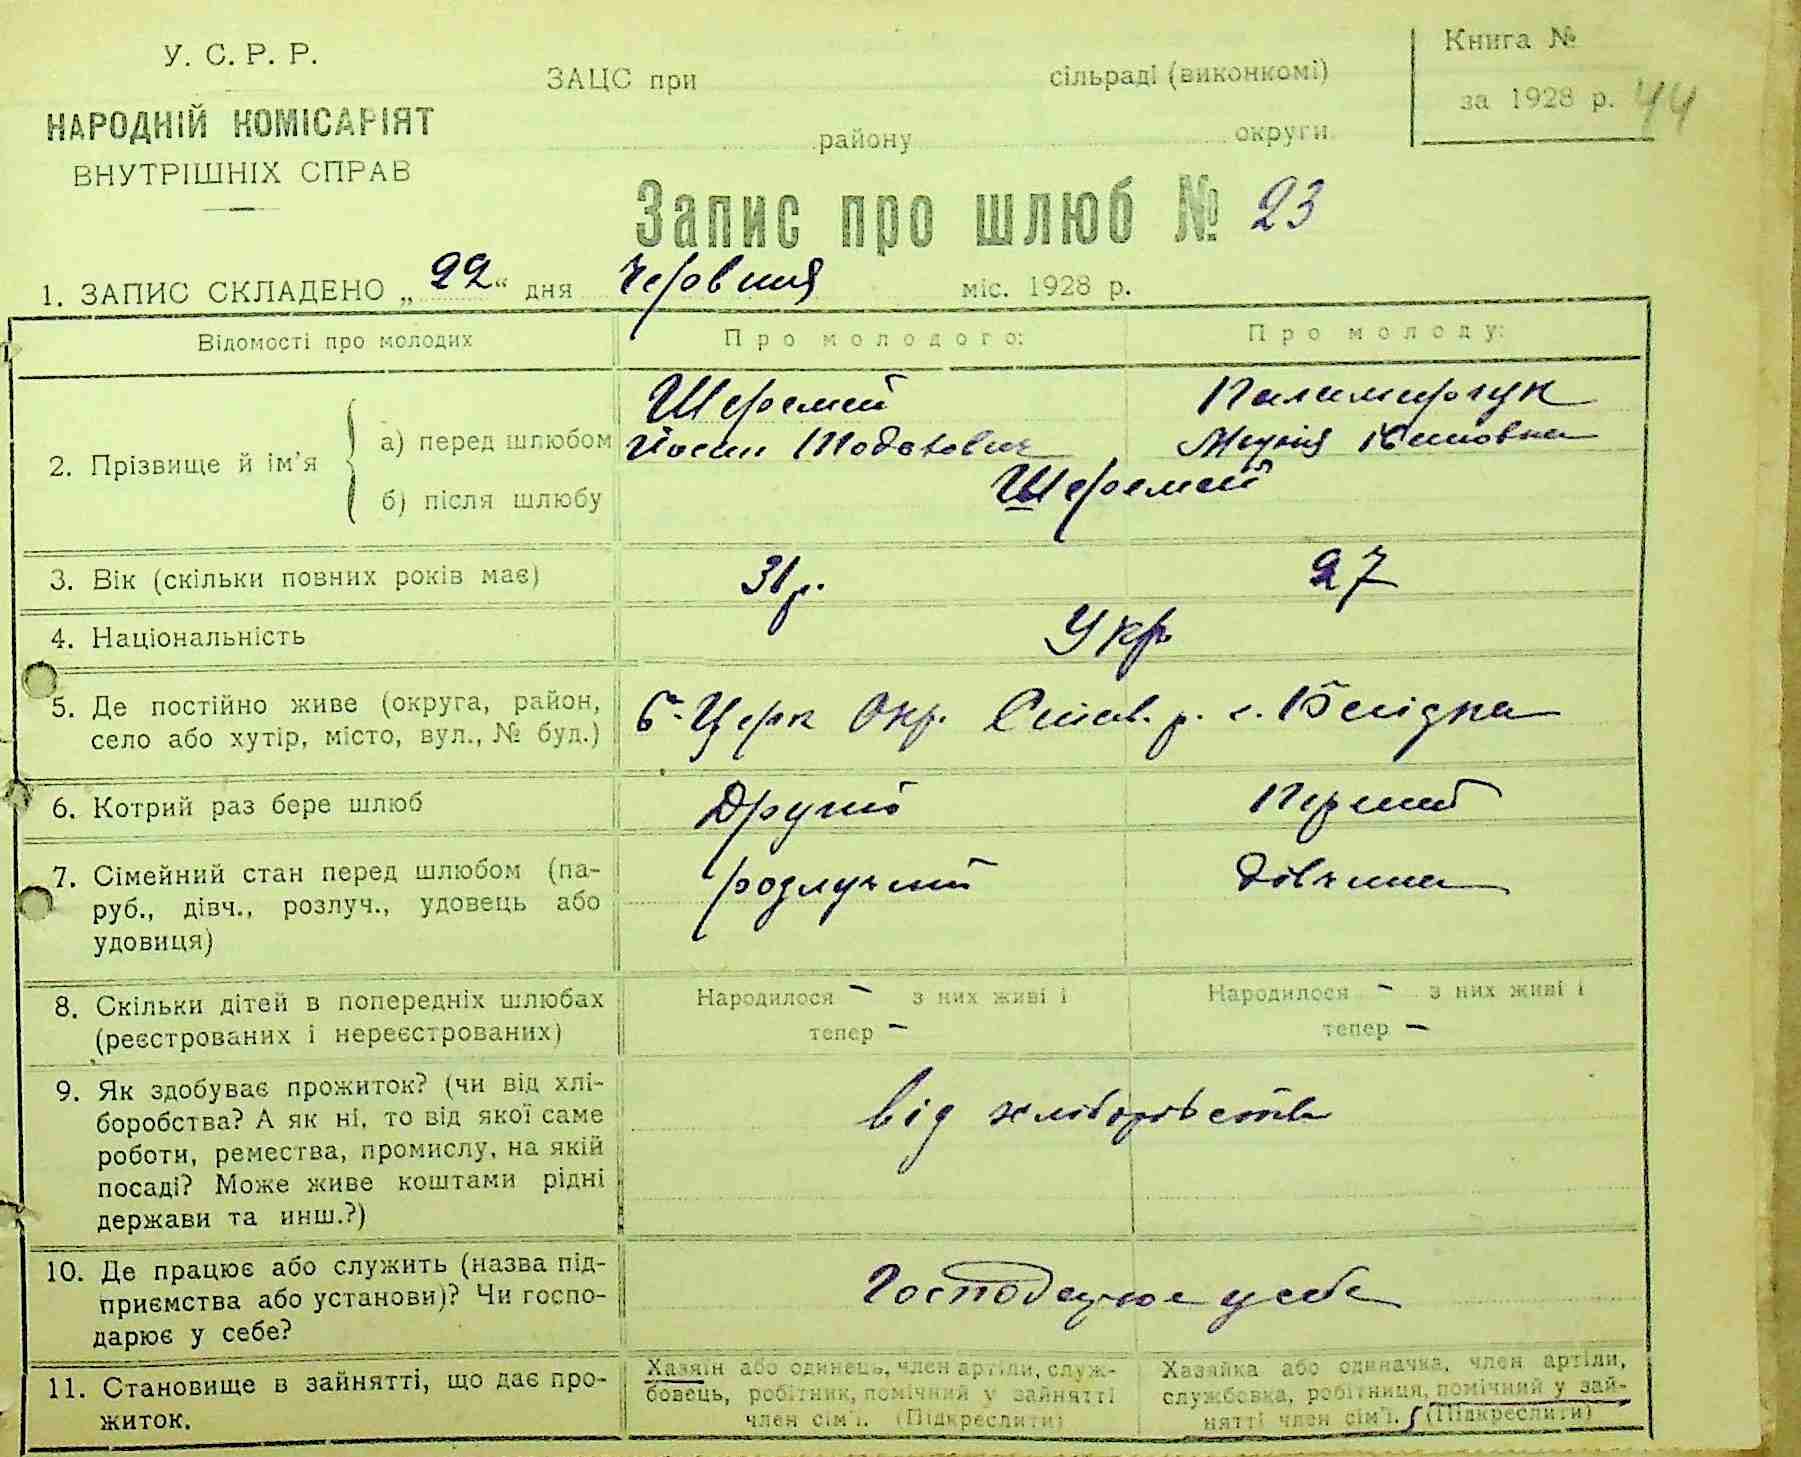 У. С. Р. Р.
НАРОДНІЙ КОМІСАРІЯТ
ВНУТРІШНІХ СПРАВ
ЗАЦС при сільраді (виконкомі)
району округи
Книга №
за 1928 р. 44
Запис про шлюб № 23
1. ЗАПИС СКЛАДЕНО „22“ дня Червня міс. 1928 р.
Відомості про молодих
Про молодого:
Про молоду:
2. Прізвище й ім'я
а) перед шлюбом
б) після шлюбу
Шеремет
Йосип
Паламарчук
Марія
Шеремет
3. Вік (скільки повних років має)
31 р.
27
4. Національність
Укр.
5. Де постійно живе (округа, район,
село або хутір, місто, вул., № буд.)
Б-Церк Окр. р. с.
6. Котрий раз бере шлюб
Другий
Перший
7. Сімейний стан перед шлюбом (па-
руб., дівч., розлуч., удовець або
удовиця)
розлучений
дівчина
8. Скільки дітей в попередніх шлюбах
(реєстрованих і нереєстрованих)
Народилося – з них живі і
тепер –
Народилося – з них живі і
тепер –
9. Як здобуває прожиток? (чи від хлі-
боробства? А як ні, то від якої саме
роботи, ремества, промислу, на якій
посаді? Може живе коштами рідні
держави та инш.?)
від хліборобства
10. Де працює або служить (назва під-
приємства або установи)? Чи госпо-
дарює у себе?
Господарює у себе
11. Становище в зайнятті, що дає про-
житок.
Хазяїн або одинець, член артіли, служ-
бовець, робітник, помічний у зайнятті
член сім'ї. (Підкреслити)
Хазяйка або одиначка, член артіли,
службовка, робітниця, помічний у зай-
нятті член сім'ї. (Підкреслити)